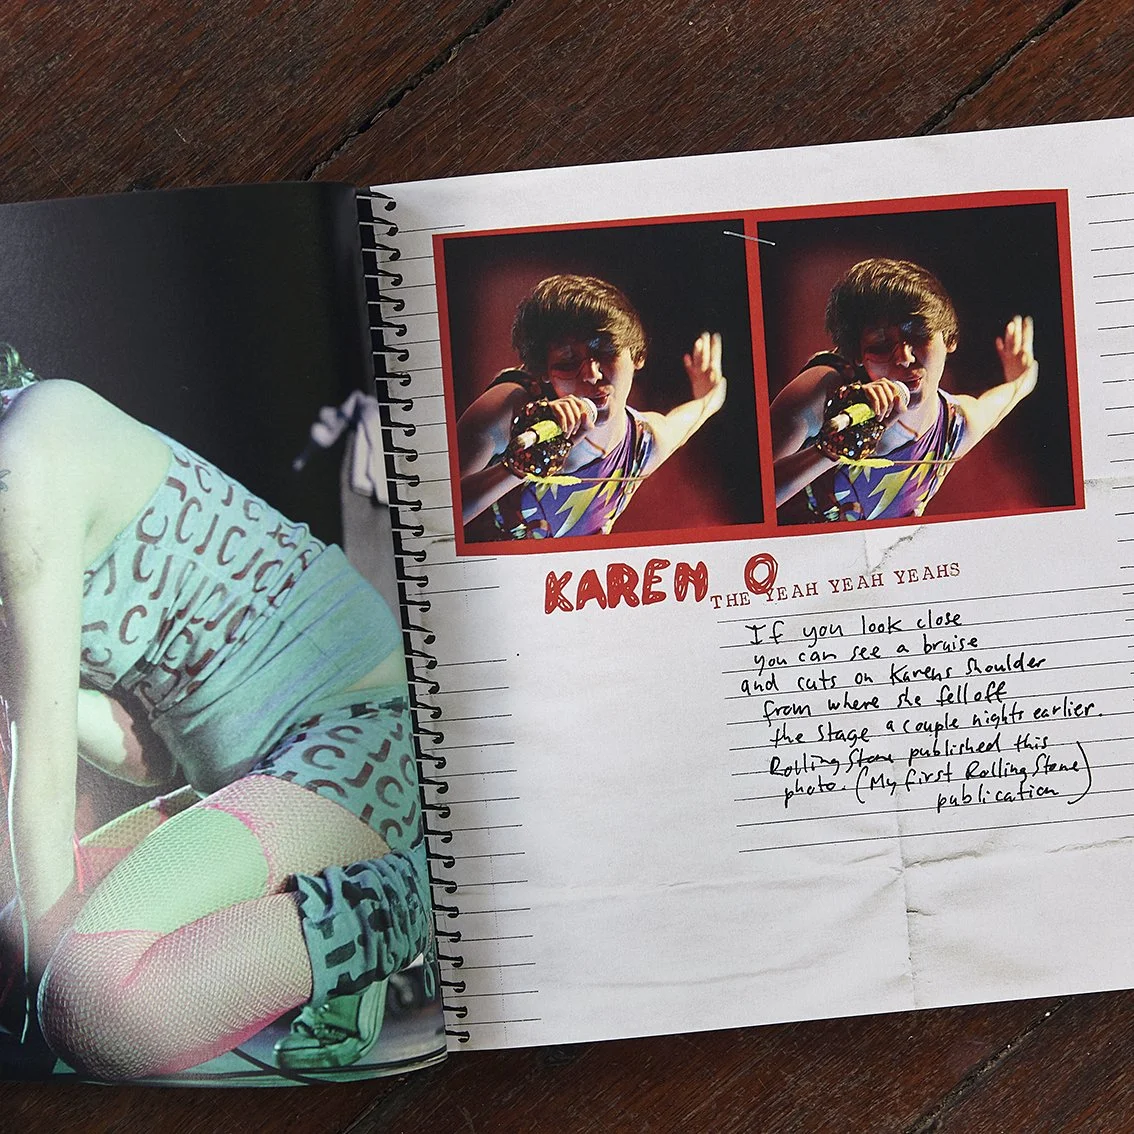 KAREN O
THE YEAH YEAH YEAHS
If you look close
you can see a bruise
and cuts on Karens shoulder
from where she fell off
the stage a couple nights earlier.
Rolling Stone published this
photo. (My first Rolling Stone
publication)